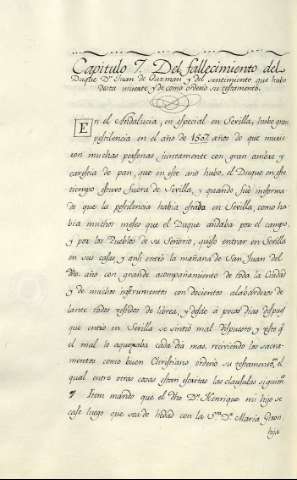 Capitulo 7. Del fallecimiento del
Duque Dn. Juan de Guzman y del sentimiento que hubo
desta muerte y de como ordenó su testamento.
En el Andalucia, en especial en Sevilla, hubo gran
pestilencia en el año de 1507 años de que murie
ron muchas personas, juntamente con gran ambre y
carestia de pan, que en este año hubo. el Duque en este
tiempo estuvo fuera de Sevilla, y quando fué informa
do que la pestilencia habia cesado en Sevilla, como ha
bia muchos meses que el Duque andaba por el campo,
y por los Pueblos de su Señorio, quiso entrar en Sevilla
en sus casas y ansi entró la mañana de San Juan del
dho. año con grande acompañamiento de toda la Ciudad
y de muchos instrumentos con docientos alabarderos de
lante todos vestidos de librea, y desde á pocos dias despues
que entró en Sevilla se sintió mal dispuesto y visto q.
el mal lo aquexaba cada dia mas, reciviendo los sacra-
mentos como buen Christiano ordenó su testamento, el
qual entre otras cosas estan escritas las clausulas siguien.
Iten mando que el dho Dn. Henrrique mi hijo se
case luego que sea de hedad con la Sra. Da. Maria Giron
hija